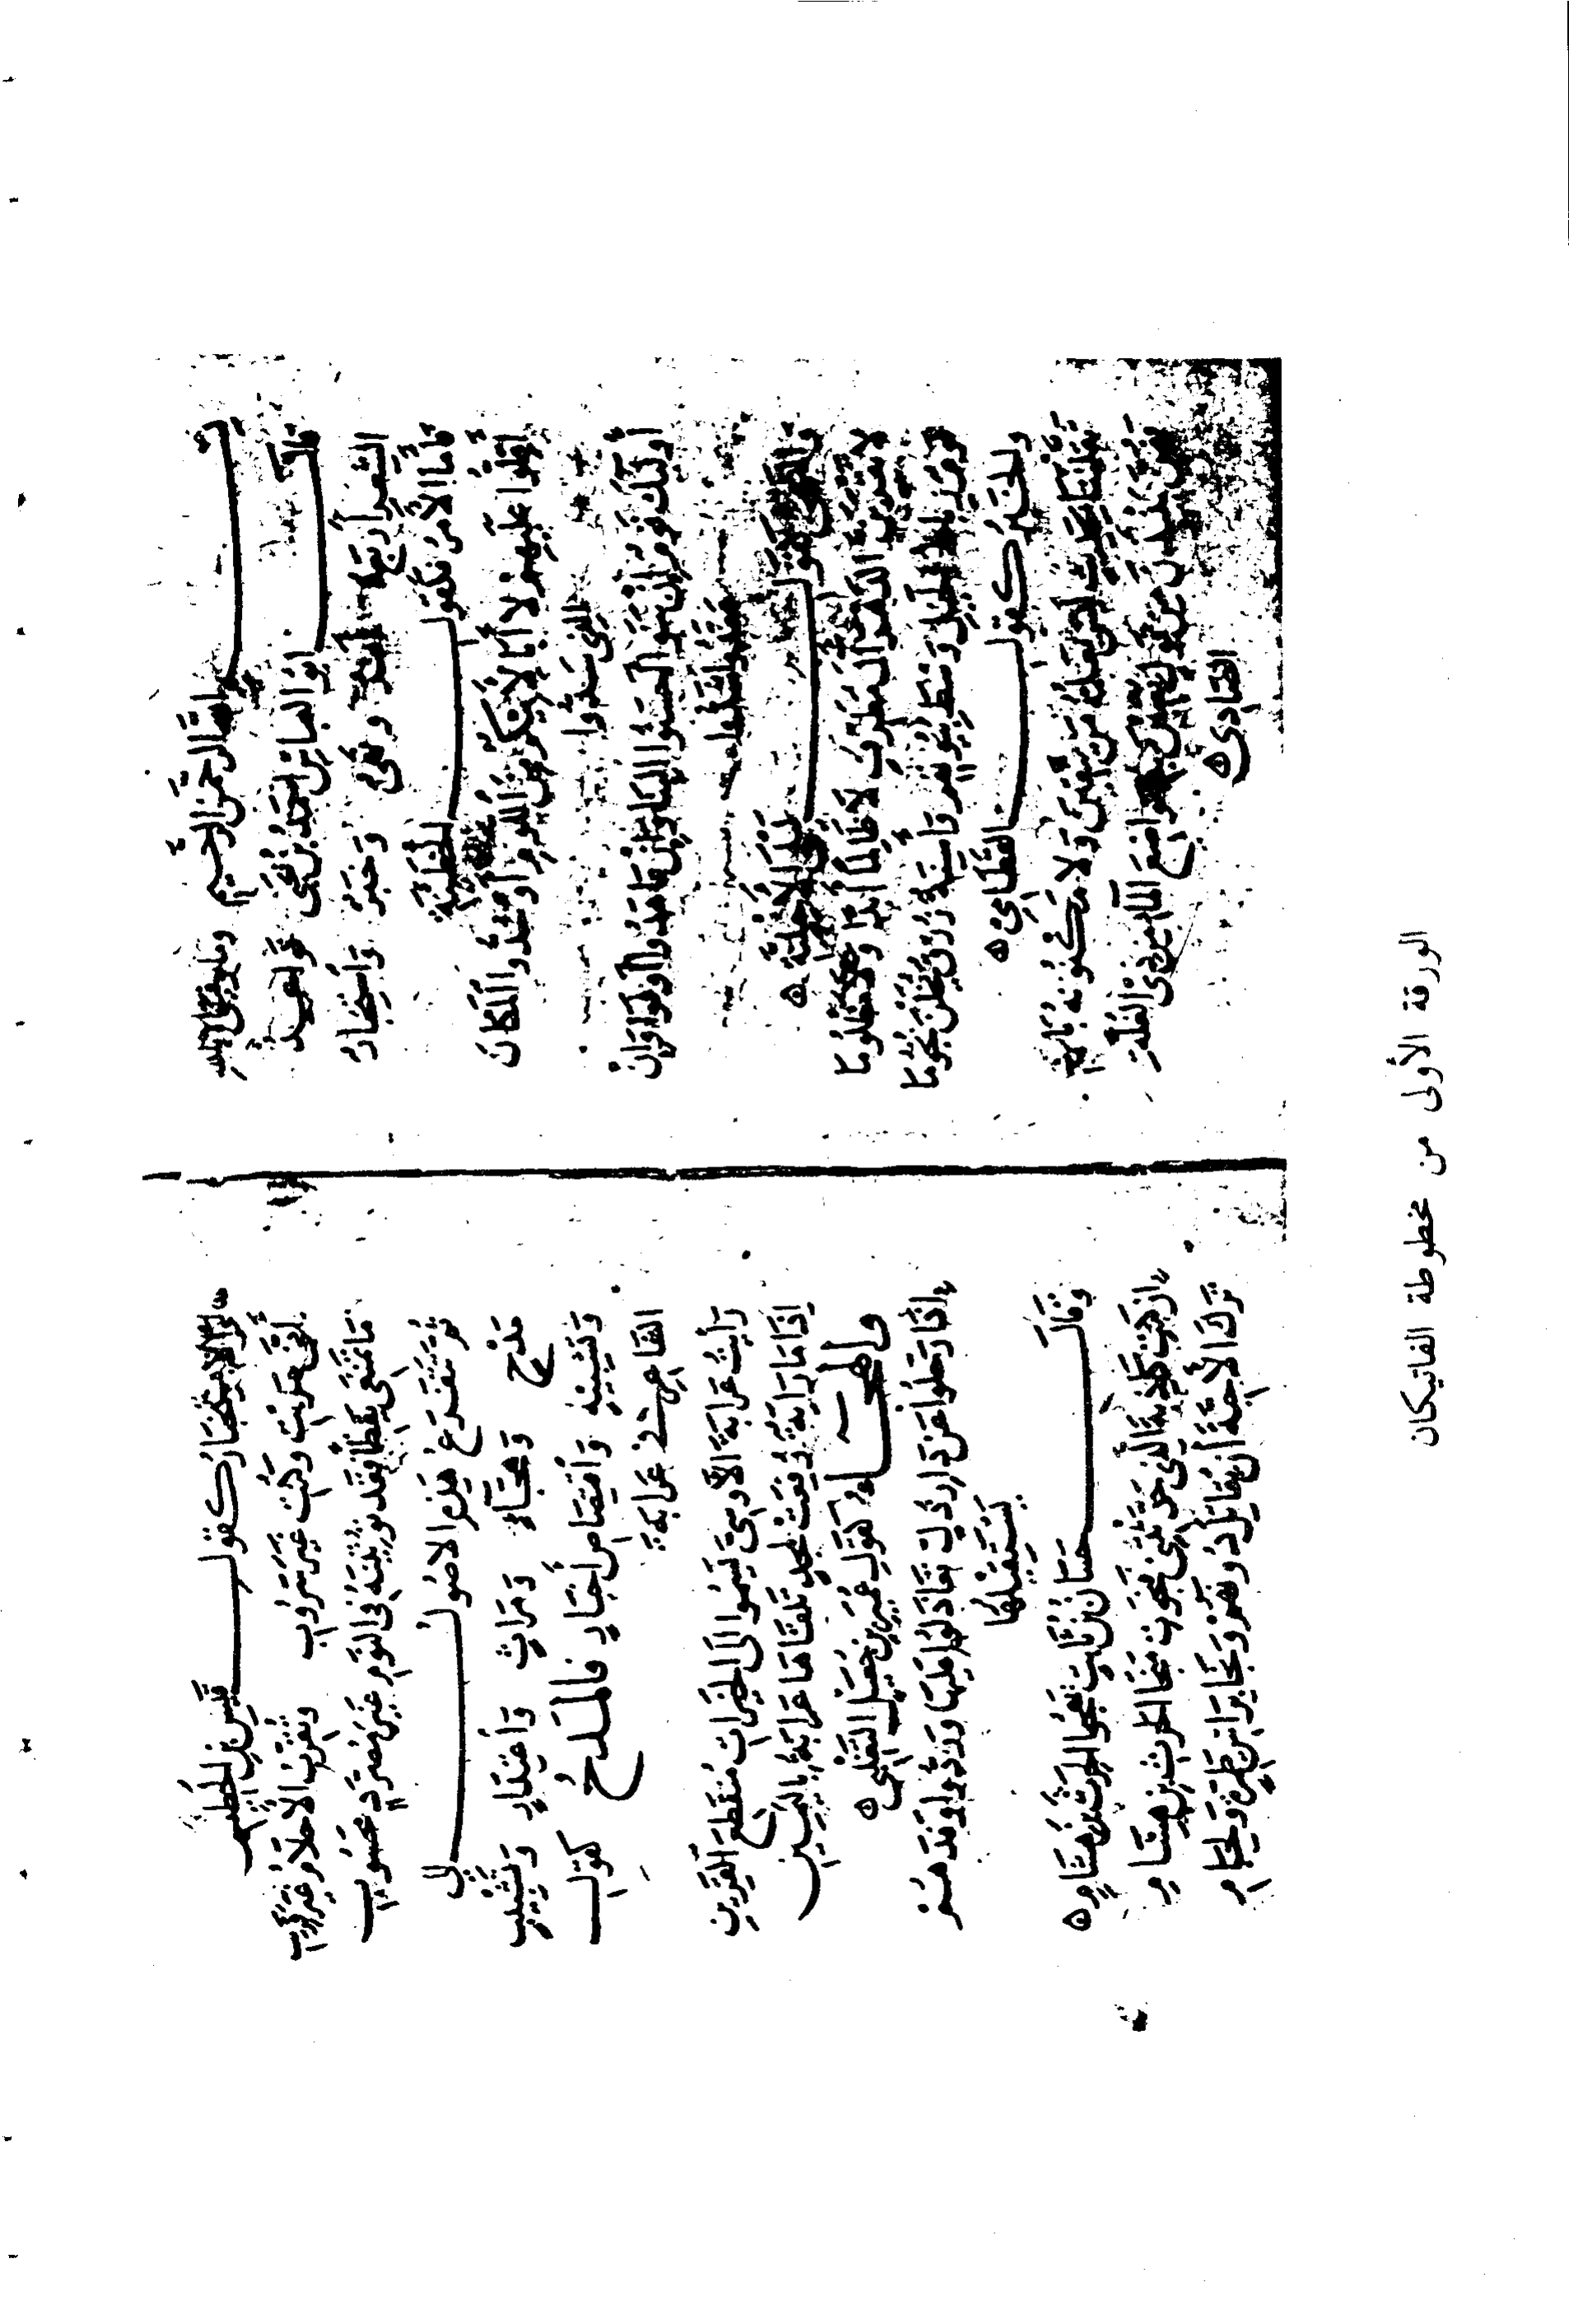 بسم الله الرحمن الرحيم وما توفيقي إلا بالله
قال أبو العباس أحمد بن يحيى قواعد
الشعر أربعة أمر ونهي وخبر واستخبار
فأما الأمر فكقول الحطيئة
أقلوا عليهم لا أبا لأبيكم من اللوم أو سدوا المكان
الذي سدوا
أولئك قوم إن بنوا أحسنوا البنا وإن عاهدوا أوفوا وإن
عقدوا شدوا
والنهي كقول ليلى الأخيلية
لا تقربن الدهر آل مطرف لا ظالما أبدا ولا مظلوما
قوم رباط الخيل وسط بيوتهم وأسنة زرق يخلن نجوما
والخبر كقول القطامي
يقتلننا بحديث ليس يعلمه من يتقين ولا مكنونه
فهن ينبذن من قول يصبن به مواقع الماء من ذي الغلة
الصادي
والاستخبار كقول قيس بن الخطيم
أنى سربت وكنت غير سروب وتقرب الأحلام غير قريب
ما تمنعي يقظا فقد تؤتينه في النوم غير مصرد محسوب
ثم تتفرع هذه الأصول إلى
مدح وهجاء ومراث واعتذار وتشبيب
وتشبيه واقتصاص أخبار فالمدح كقول
الشماخ في عرابة
رأيت عرابة الأوسي يسمو إلى الخيرات منقطع القرين
إذا ما راية رفعت لمجد تلقاها عرابة باليمين
والهجاء كقول عميرة بن جعيل التغلبي
إذا رحلوا عن دار ذل تعاذلوا عليها وردوا وفدهم
يستقيلها
وقال حسان بن ثابت يهجو الحرث بن هشام
إن كنت كاذبة الذي حدثتني فنجوت منجا الحرث بن هشام
ترك الأحبة أن يقاتل دونهم ونجا براس طمرة ولجام
الورقة الأولى من مخطوطة الفاتيكان